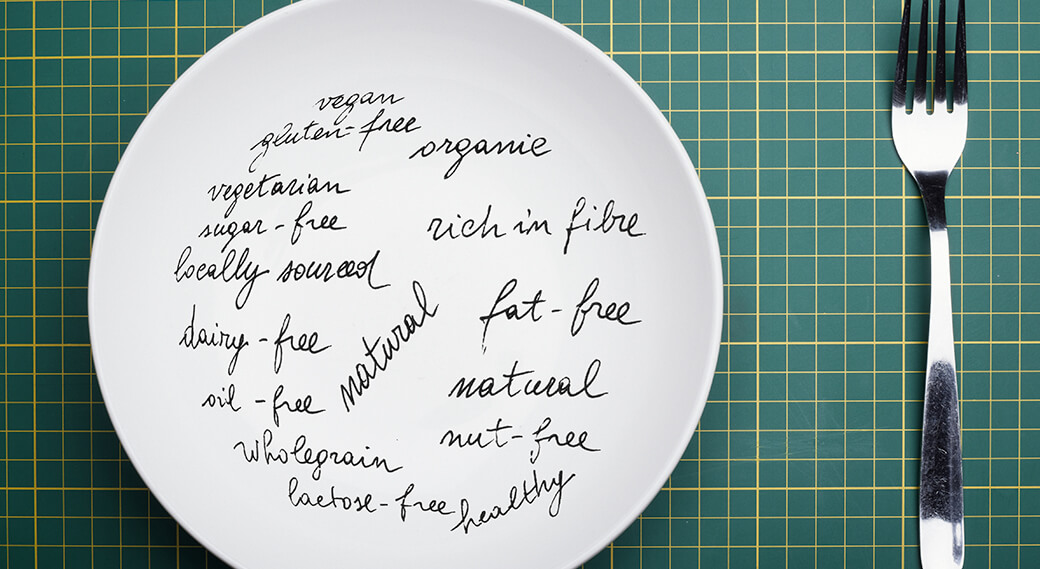 vegan
gluten-free
organic
vegetarian
sugar-free
rich in fibre
locally sourced
fat-free
dairy-free
natural
natural
oil-free
nut-free
wholegrain
lactose-free
healthy